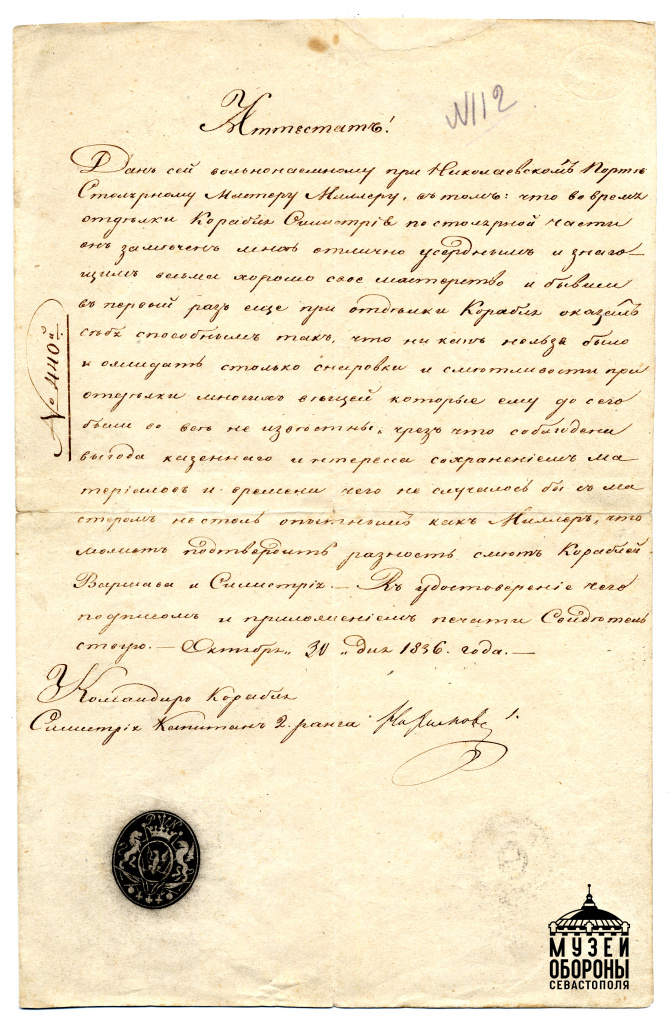 Аттестатъ!
N112
Данъ сей вольнонаемному при Николаевскомъ Портѣ
Столярному Мастеру Миллеру, въ томъ: что во время
отдѣлки Корабля Силистрія по столярной части
онъ замѣченъ мною отлично усерднымъ и знаю-
щимъ весьма хорошо свое мастерство и бывши
въ первой разъ еще при отдѣлки Корабля оказалъ
себя способнымъ такъ, что ни какъ нельзя было
и ожидать столько снаровки и смѣтливости при
отдѣлки многихъ вещей которые ему до сего
были во все не извѣстны, чрезъ что соблюдена
выгода казеннаго интересса сохраненіемъ ма-
теріаловъ и времени чего не случалось бы съ ма
стеромъ не столь опытнымъ какъ Миллеръ, что
можетъ подтвердить разность смѣтъ Кораблей
Варшава и Силистрія. — Въ удостовереніе чего
подписомъ и приложеніемъ печати Свидѣтель
ствую. — Октября „ 30 „ дня 1836. года. —
No 440й
Командиръ Корабля
Силистрія Капитанъ 2. ранга
МУЗЕЙ
ОБОРОНЫ
СЕВАСТОПОЛЯ